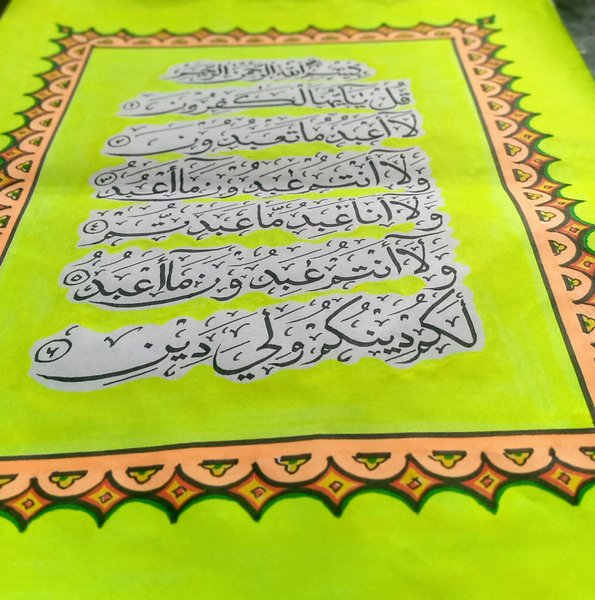 بِسْمِ اللهِ الرَّحْمٰنِ الرَّحِيْمِ
قُلْ يٰٓاَيُّهَا الْكٰفِرُوْنَ ١
لَآ أَعْبُدُ مَا تَعْبُدُوْنَ ٢
وَلَآ أَنْتُمْ عٰبِدُوْنَ مَآ أَعْبُدُ ٣
وَلَآ أَنَا۠ عَابِدٌ مَّا عَبَدْتُّمْ ٤
وَلَآ أَنْتُمْ عٰبِدُوْنَ مَآ أَعْبُدُ ٥
لَكُمْ دِيْنُكُمْ وَلِيَ دِيْنِ ٦